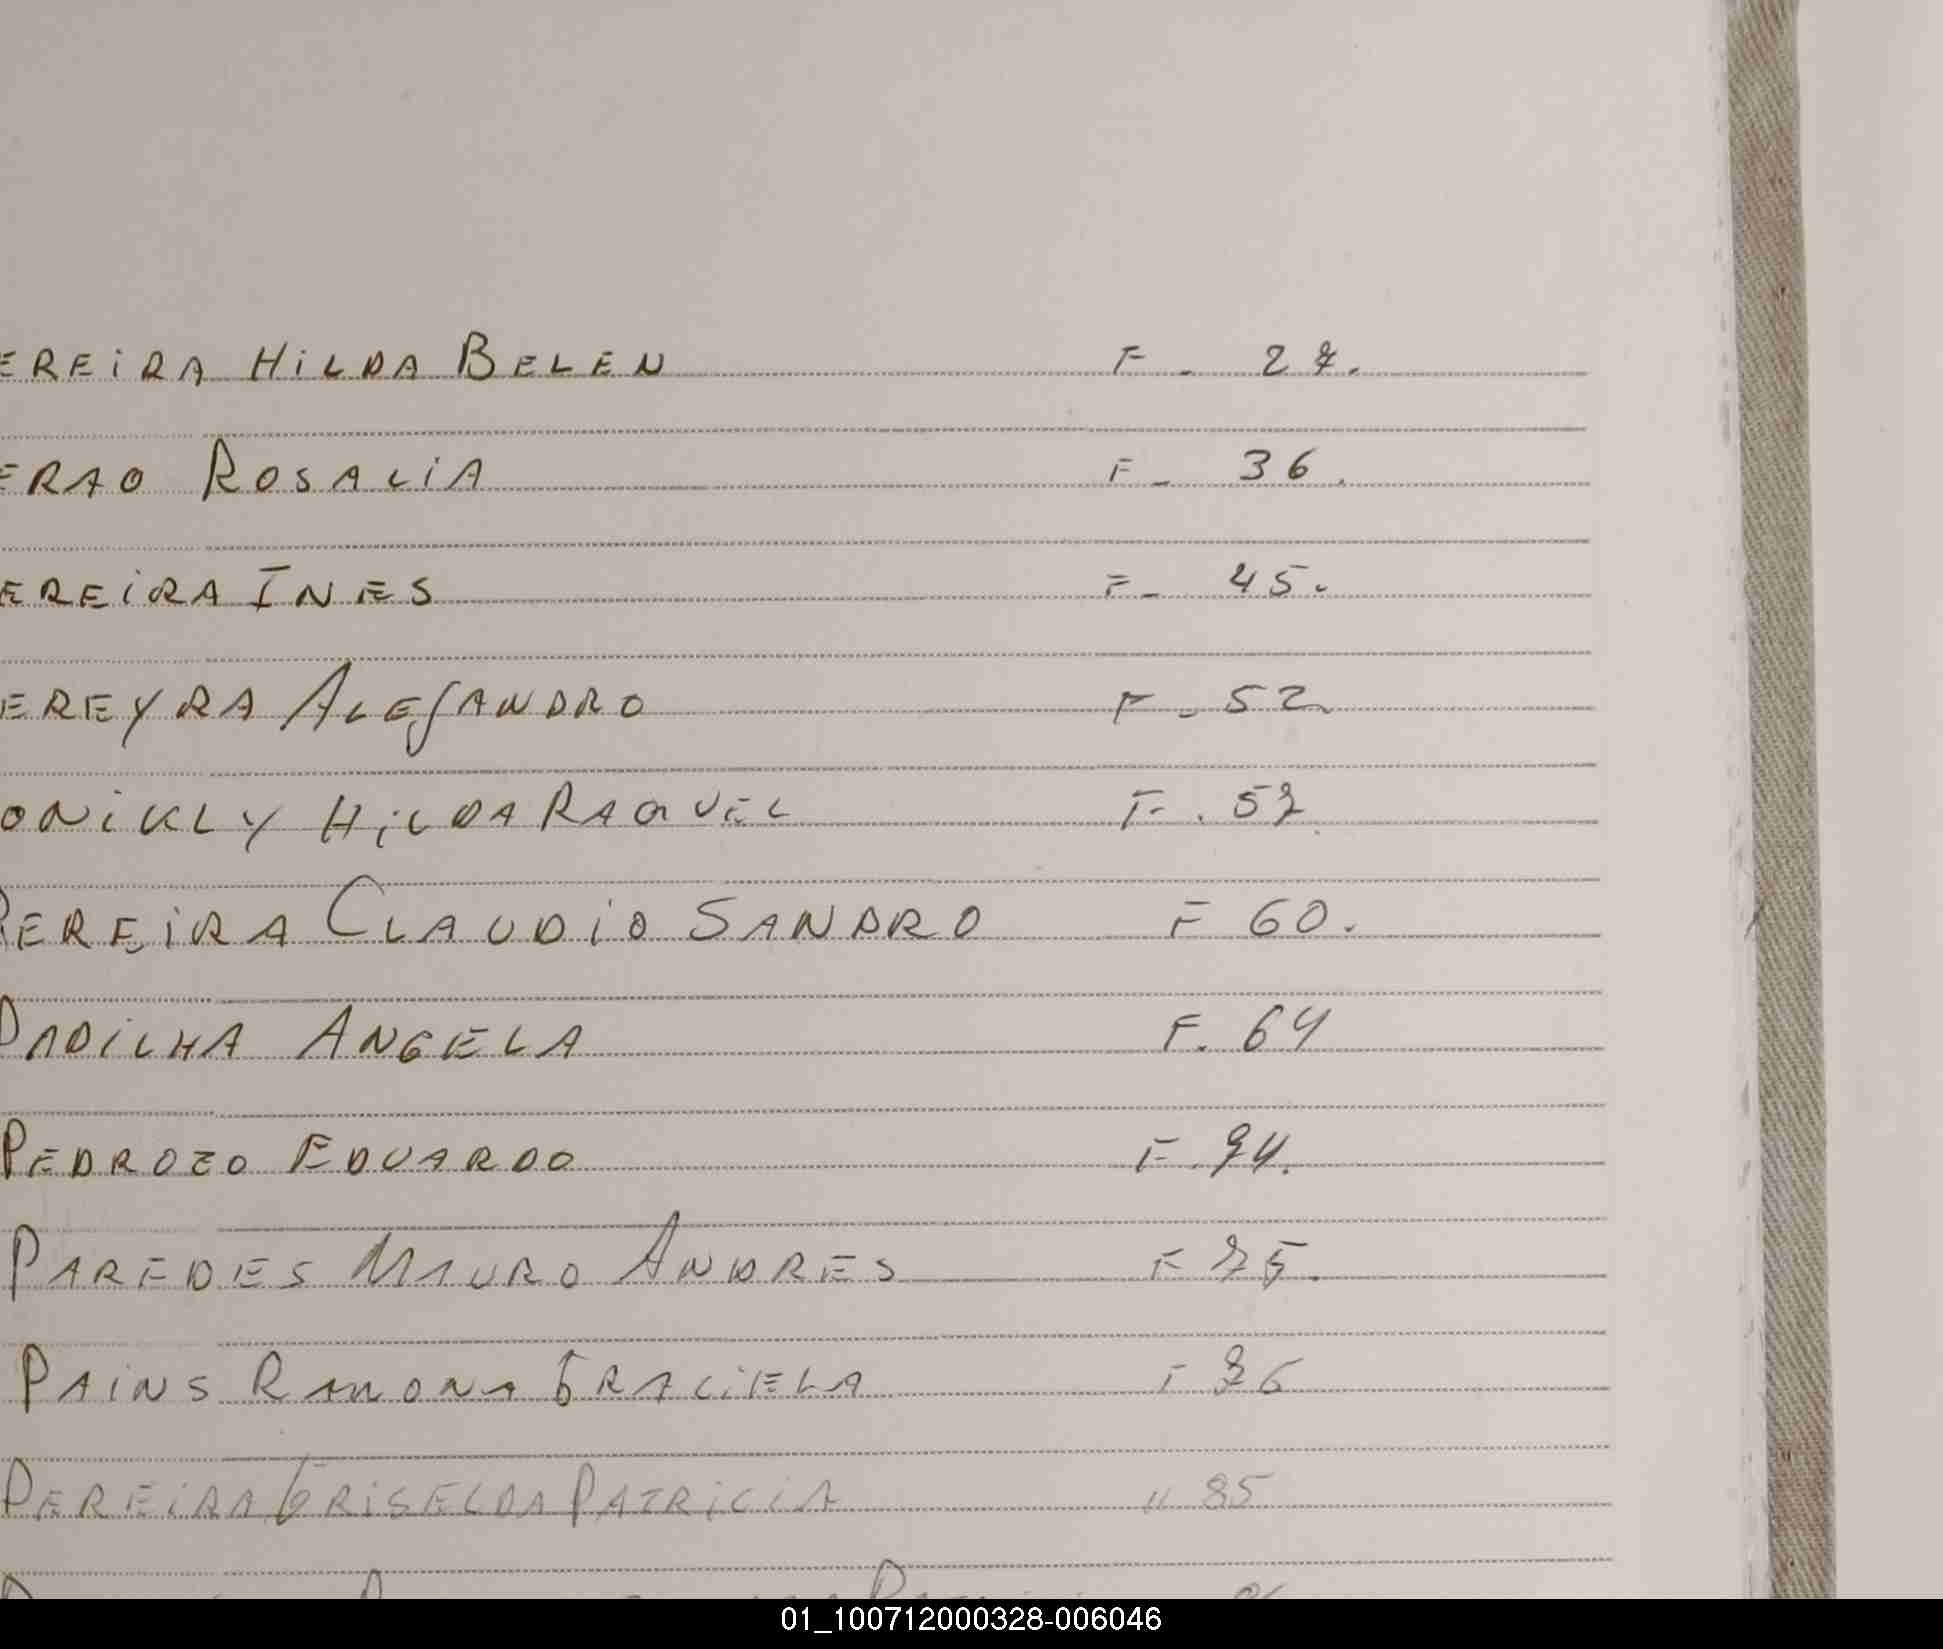 EREIRA HILDA BELEN F - 27.
ERAO ROSALIA F - 36.
EREIRA INES F - 45.
EREYRA ALEJANDRO F - 52.
ONIKLY HILDA RAQUEL F. 57.
PEREIRA CLAUDIO SANDRO F 60.
PADILHA ANGELA F. 64
PEDROZO EDUARDO F. 74.
PAREDES MAURO ANDRES F 75.
PAINS RAMONA GRACIELA F 76
PEREIRA GRISELDA PATRICIA " 85
01_100712000328-006046